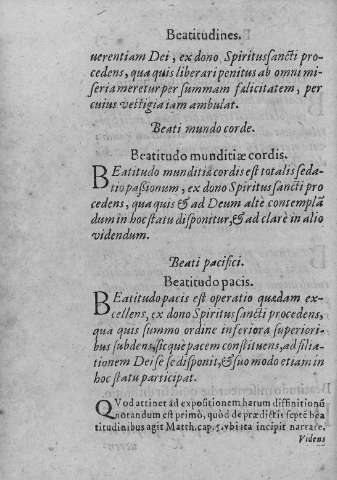 Beatitudines.
uerentiam Dei, ex dono Spiritussancti pro-
cedens, qua quis liberari penitus ab omni mi-
seria meretur per summam fælicitatem, per
cuius vestigia iam ambulat.
Beati mundo corde.
Beatitudo munditiæ cordis.
BEatitudo munditiæ cordis est totalis seda-
tio passionum, ex dono Spiritussancti pro
cedens, qua quis & ad Deum altè contemplā
dum in hoc statu disponitur, & ad clarè in alio
videndum.
Beati pacifici.
Beatitudo pacis.
BEatitudo pacis est operatio quædam ex-
cellens, ex dono Spiritussancti procedens,
qua quis summo ordine inferiora superiori-
bus subdens, sicque pacem constituens, ad filia-
tionem Dei se disponit, & suo modo etiam in
hoc statu participat.
QVod attinet ad expositionem harum diffinitionū
notandum est primò, quòd de prædictis septē bea
titudinibus agit Matth. cap. 5. vbi ita incipit narrare.
Videns